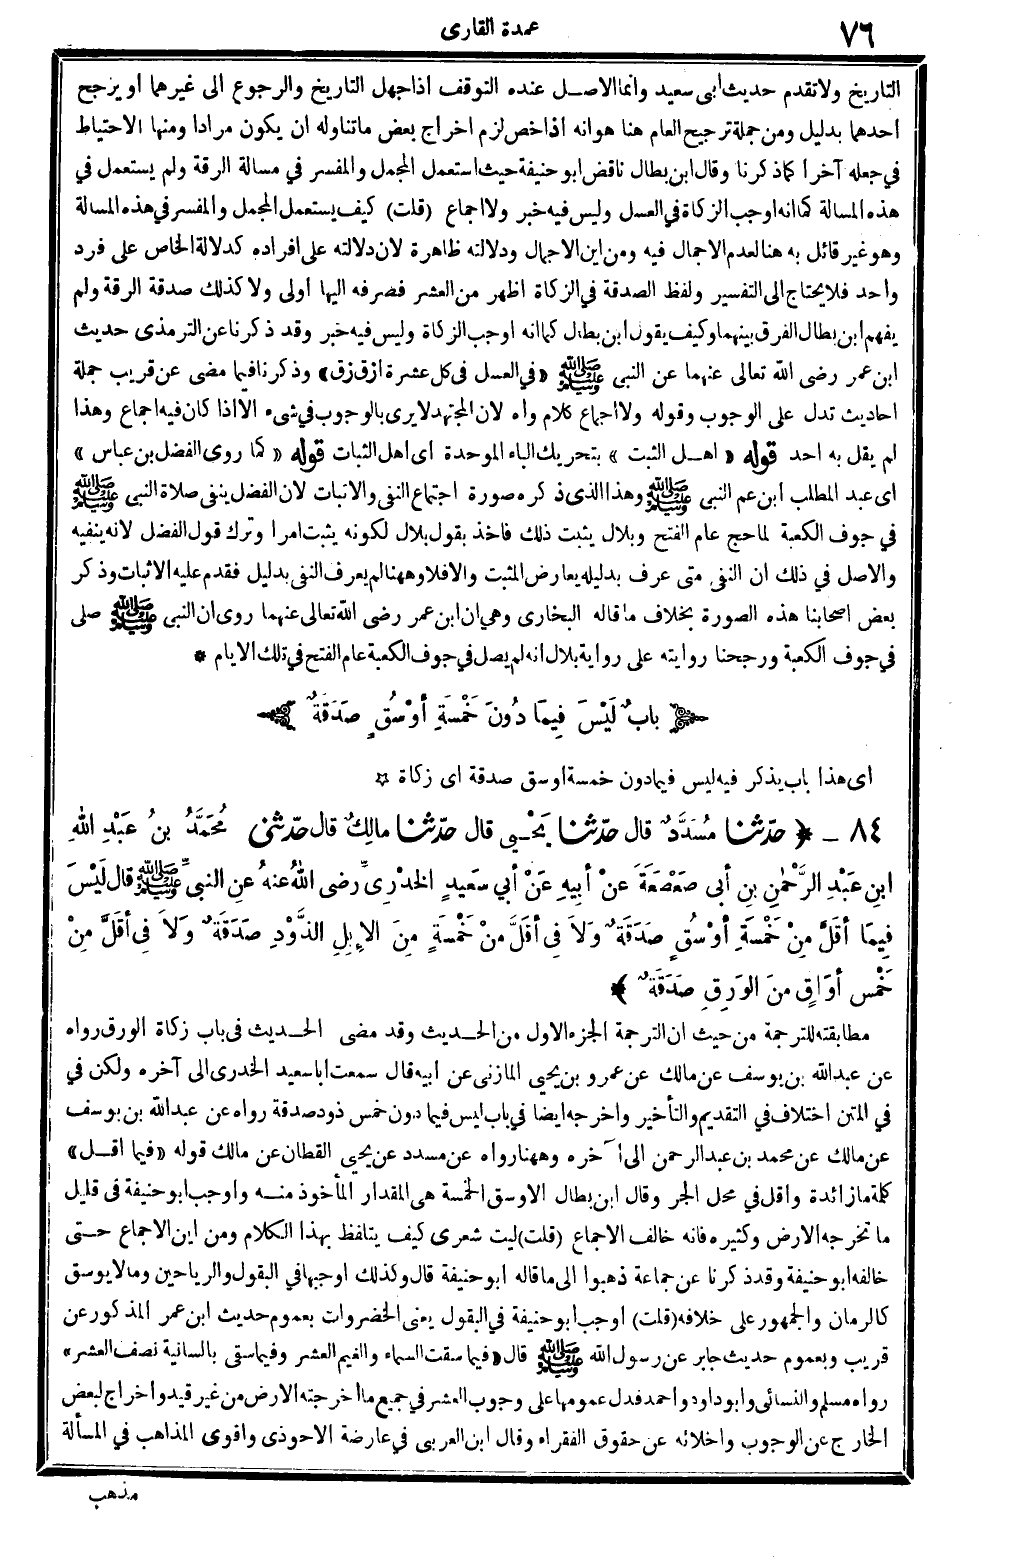 ٧٦
عمدة القارى
التاريخ ولا تقدم حديث أبى سعيد وانما الاصل عنده التوقف اذا جهل التاريخ والرجوع الى غيرهما او يرجح
احدهما بدليل ومن جملة ترجيح العام هنا هو انه اذا خص لزم اخراج بعض ما تناوله ان يكون مرادا ومنها الاحتياط
في جعله آخرا كما ذكرنا وقال ابن بطال ناقض ابو حنيفة حيث استعمل المجمل والمفسر في مسالة الرقة ولم يستعمل في
هذه المسالة كما انه اوجب الزكاة في العسل وليس فيه خبر ولا اجماع (قلت) كيف يستعمل المجمل والمفسر في هذه المسالة
وهو غير قائل به هنا لعدم الاجمال فيه ومن اين الاجمال ودلالته ظاهرة لان دلالته على افراده كدلالة الخاص على فرد
واحد فلا يحتاج الى التفسير ولفظ الصدقة في الزكاة اظهر من العشر فصرفه اليها أولى ولا كذلك صدقة الرقة ولم
يفهم ابن بطال الفرق بينهما وكيف يقول ابن بطال كما انه اوجب الزكاة وليس فيه خبر وقد ذكرنا عن الترمذى حديث
ابن عمر رضى الله تعالى عنهما عن النبى ﷺ «في العسل فى كل عشرة ازق زق» وذكرنا فيما مضى عن قريب جملة
احاديث تدل على الوجوب وقوله ولا اجماع كلام واه لان المجتهد لا يرى بالوجوب في شىء الا اذا كان فيه اجماع وهذا
لم يقل به احد قوله «اهل الثبت» بتحريك الباء الموحدة اى اهل الثبات قوله «كما روى الفضل بن عباس»
اى عبد المطلب ابن عم النبى ﷺ وهذا الذى ذكره صورة اجتماع النفى والاثبات لان الفضل ينفى صلاة النبى ﷺ
في جوف الكعبة لما حج عام الفتح وبلال يثبت ذلك فاخذ بقول بلال لكونه يثبت امرا وترك قول الفضل لانه ينفيه
والاصل في ذلك ان النفى متى عرف بدليله يعارض المثبت والا فلا وههنا لم يعرف النفى بدليل فقدم عليه الاثبات وذكر
بعض اصحابنا هذه الصورة بخلاف ما قاله البخارى وهى ان ابن عمر رضى الله تعالى عنهما روى ان النبى ﷺ صلى
في جوف الكعبة ورجحنا روايته على رواية بلال انه لم يصل في جوف الكعبة عام الفتح في تلك الايام *
بابٌ لَيْسَ فِيمَا دُونَ خَمْسَةِ أوْسُقٍ صَدَقَةٌ
اى هذا باب يذكر فيه ليس فيما دون خمسة اوسق صدقة اى زكاة ☆
٨٤ ـ ﴿حدّثنا مُسَدَّدٌ قال حدّثنا يَحْيى قال حدّثنا مالِكٌ قال حدّثنى مُحَمَّدُ بنُ عَبْدِ اللهِ
ابنِ عَبْدِ الرَّحْمٰنِ بنِ أبى صَعْصَعَةَ عنْ أبِيهِ عَنْ أبي سَعِيدٍ الخدْرِىِّ رضى اللهُ عنهُ عنِ النبىِّ ﷺ قال لَيْسَ
فِيمَا أقَلَّ مِنْ خَمْسَةِ أوْسُقٍ صَدَقَةٌ وَلاَ فِى أقَلَّ مِنْ خَمْسَةٍ مِنَ الإبِلِ الذَّوْدِ صَدَقَةٌ وَلاَ فِى أقَلَّ مِنْ
خَمْسِ أوَاقٍ مِنَ الوَرِقِ صَدَقَةٌ﴾
مطابقته للترجمة من حيث ان الترجمة الجزء الاول من الحديث وقد مضى الحديث فى باب زكاة الورق رواه
عن عبد الله بن يوسف عن مالك عن عمرو بن يحيى المازنى عن ابيه قال سمعت ابا سعيد الخدرى الى آخره ولكن في
في المتن اختلاف في التقديم والتأخير واخرجه ايضا في باب ليس فيما دون خمس ذود صدقة رواه عن عبد الله بن يوسف
عن مالك عن محمد بن عبد الرحمن الى آخره وههنا رواه عن مسدد عن يحيى القطان عن مالك قوله «فيما اقل»
كلمة ما زائدة واقل في محل الجر وقال ابن بطال الاوسق الخمسة هى المقدار المأخوذ منه واوجب ابو حنيفة فى قليل
ما تخرجه الارض وكثيره فانه خالف الاجماع (قلت) ليت شعرى كيف يتلفظ بهذا الكلام ومن اين الاجماع حتى
خالفه ابو حنيفة وقد ذكرنا عن جماعة ذهبوا الى ما قاله ابو حنيفة قال وكذلك اوجبها في البقول والرياحين وما لا يوسق
كالرمان والجمهور على خلافه (قلت) اوجب ابو حنيفة في البقول يعنى الخضروات بعموم حديث ابن عمر المذكور عن
قريب وبعموم حديث جابر عن رسول الله ﷺ قال «فيما سقت السماء والغيم العشر وفيما سقى بالسانية نصف العشر»
رواه مسلم والنسائى وابو داود واحمد فدل عمومها على وجوب العشر في جميع ما اخرجته الارض من غير قيد واخراج لبعض
الخارج عن الوجوب واخلائه عن حقوق الفقراء وقال ابن العربى في عارضة الاحوذى واقوى المذاهب في المسألة
مذهب